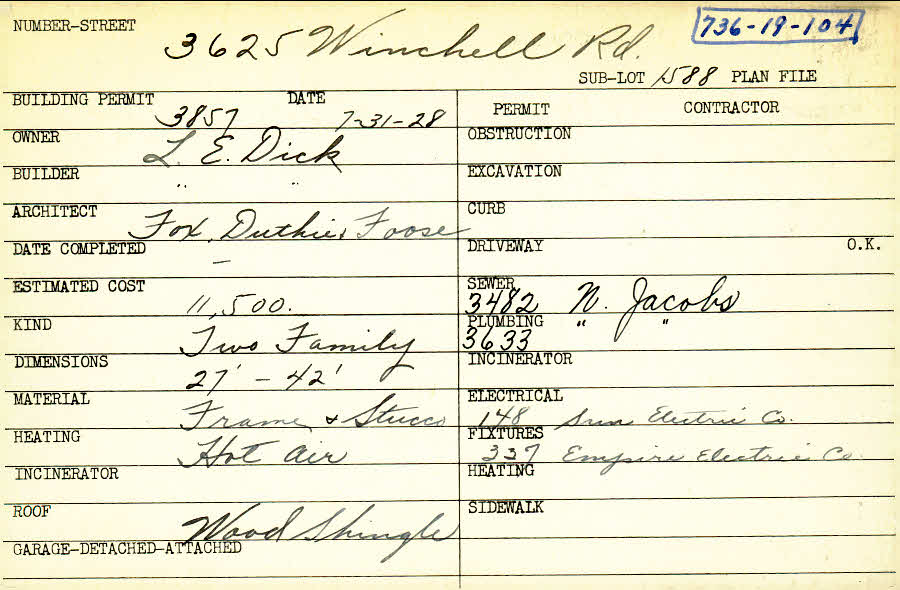 736-19-104
NUMBER-STREET 3625 Winchell Rd.
SUB-LOT 1588 PLAN FILE
BUILDING PERMIT 3857 DATE 7-31-28
OWNER L. E. Dick
BUILDER " "
ARCHITECT Fox, Duthie & Foose
DATE COMPLETED –
ESTIMATED COST 11,500.
KIND Two Family
DIMENSIONS 27' - 42'
MATERIAL Frame & Stucco
HEATING Hot Air
INCINERATOR
ROOF Wood Shingle
GARAGE-DETACHED-ATTACHED
PERMIT CONTRACTOR
OBSTRUCTION
EXCAVATION
CURB
DRIVEWAY O.K.
SEWER 3482 N. Jacobs
PLUMBING 3633 " "
INCINERATOR
ELECTRICAL 148 Sun Electric Co.
FIXTURES 337 Empire Electric Co
HEATING
SIDEWALK